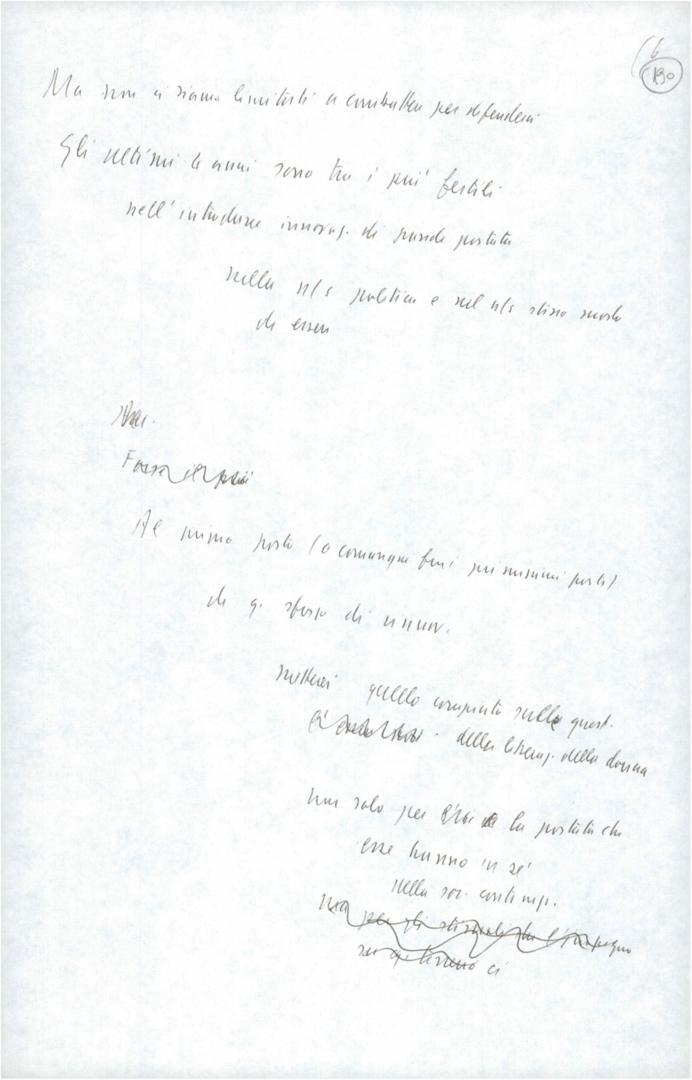 16
130
Ma non ci siamo limitati a combattere per difenderci
Gli ultimi 4 anni sono tra i più fertili
nell'introdurre innovaz. di grande portata
nella n/s politica e nel n/s stesso modo
di essere
Forse il più
Al primo posto (o comunque fra i primissimi posti)
di q. sforzo di innov.
metterei quello compiuto sulle quest.
della liberaz. della donna
non solo per la portata che
esse hanno in sé
nella soc. contemp.
ma per gli stimoli che l'impegno
ci